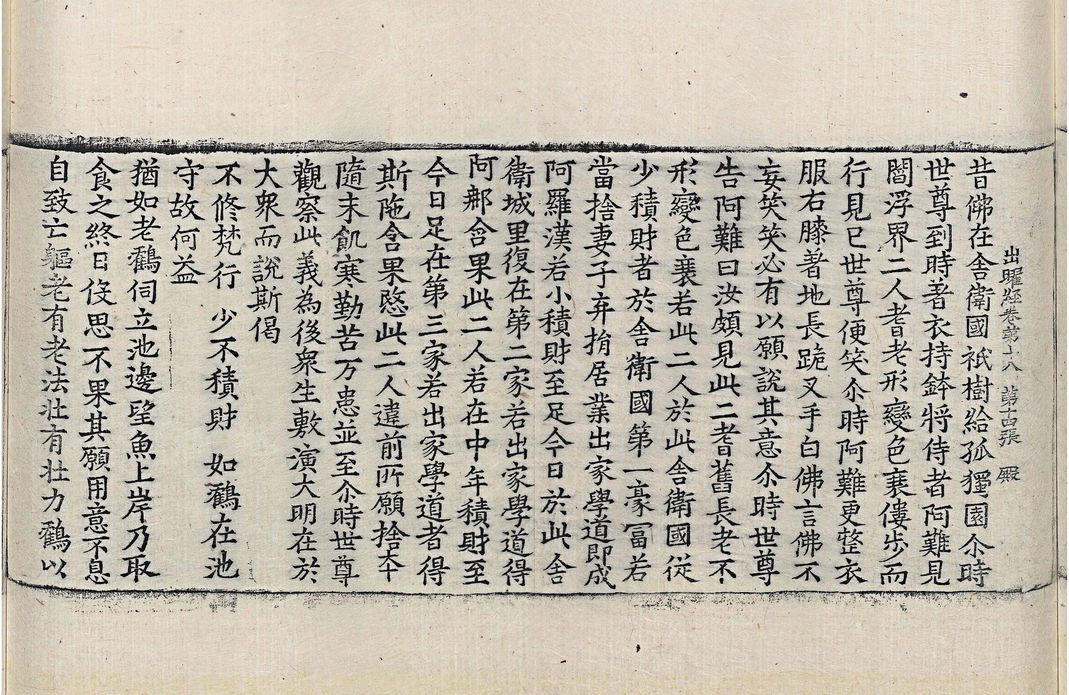 出曜經卷第十八 第十四張 殿
昔佛在舍衛國祇樹給孤獨園尒時
世尊到時著衣持鉢將侍者阿難見
閻浮界二人耆老形變色衰僂步而
行見已世尊便笑尒時阿難更整衣
服右膝著地長跪叉手白佛言佛不
妄笑笑必有以願說其意尒時世尊
告阿難曰汝頗見此二耆舊長老不
形變色衰若此二人於此舍衛國從
少積財者於舍衛國第一豪冨若
當捨妻子弃捐居業出家學道即成
阿羅漢若小積財至足今日於此舍
衛城里復在第二家若出家學道得
阿那含果此二人若在中年積財至
今日足在第三家若出家學道者得
斯陁含果愍此二人違前所願捨本
隨末飢寒勤苦万患並至尒時世尊
觀察此義為後眾生敷演大明在於
大眾而說斯偈
不修梵行 少不積財 如鸖在池
守故何益
猶如老鸖伺立池邊望魚上岸乃取
食之終日伇思不果其願用意不息
自致亡軀老有老法壯有壯力鸖以